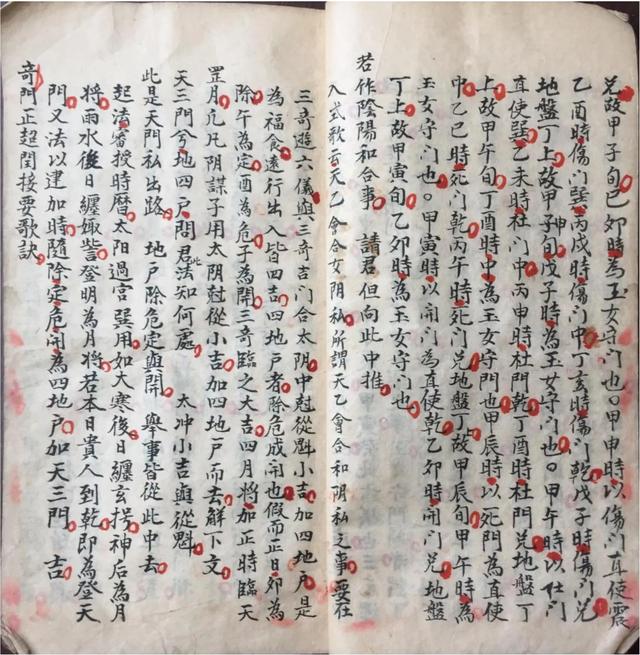 兑故甲子旬己卯時為玉女守门也甲申時以傷门直使震
乙酉時傷门巽丙戌時傷门中丁亥時傷门乾戊子時傷门兑
地盤丁上故甲子旬戊子時為玉女守门也甲午時以杜门
直使巽乙未時杜门中丙申時杜门乾丁酉時杜门兑地盤丁
上故甲午旬丁酉時中為玉女守門也甲辰時以死門為直使
中乙巳時死门乾丙午時死门兑地盤丁故甲辰旬甲午時為
玉女守门也甲寅時以開门為直使乾乙卯時開门兑地盤
丁上故甲寅旬乙卯時為玉女守门也
若作陰陽和合事 請君但向此中推
入式歌云天乙會合女阴私所謂天乙會合和阴私之事要在
三奇遊六儀與三奇吉门合太阴中尅從魁小吉加四地户是
為福食遠行出入皆四吉四地户者除危成開也假而正日卯為
除午為定酉為危子為開三奇臨之大吉四月將加正時臨天
罡月凢凡阴謀子用太阴尅從小吉加四地户而去解下文
天三門兮地四户問君此法知何處 太冲小吉與從魁
此是天門私出路 地户除危定與開 舉事皆從此中去
起清番授時曆太阳過宮巽用如大寒後日纏玄枵神后為月
將雨水後日纏娵訾登明為月將若本日貴人到乾即為登天
門又法以建加時隨除定危開為四地户加天三門 吉
奇门正超閏接要歌訣